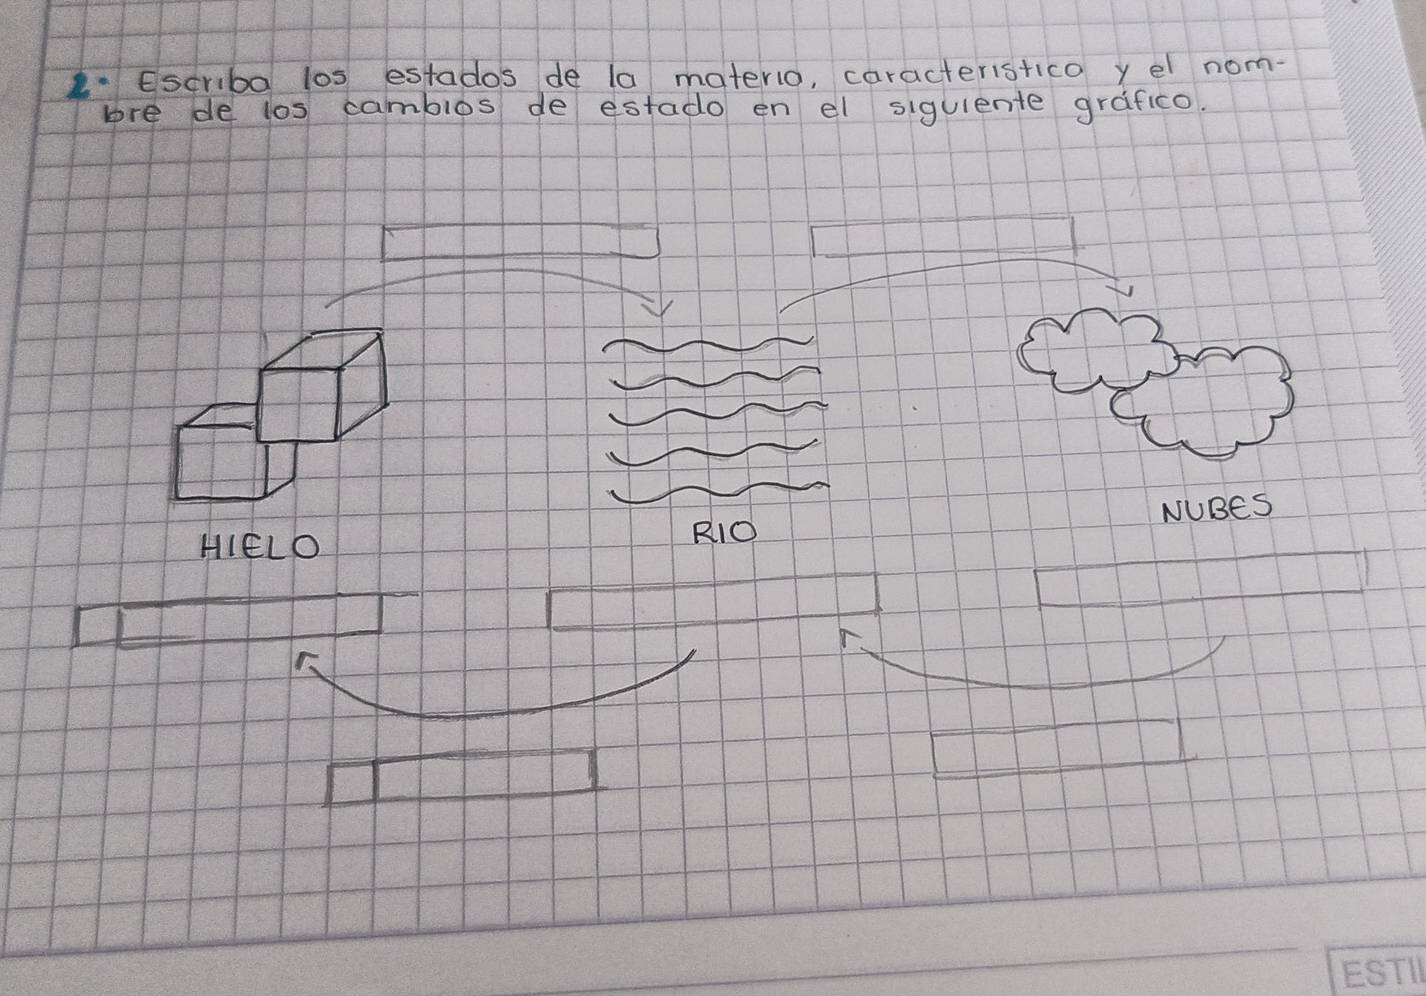 2. Escriba los estados de la materia, caracteristica y el nom-
bre de los cambios de estado en el siguiente gráfico.
HIELO
RIO
NUBES